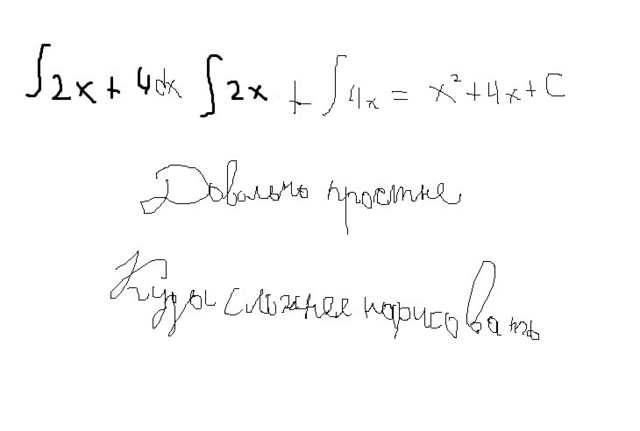 ∫2x + 4dx ∫2x + ∫4x = x² + 4x + C
Довольно простые
Куды сложнее нарисовать